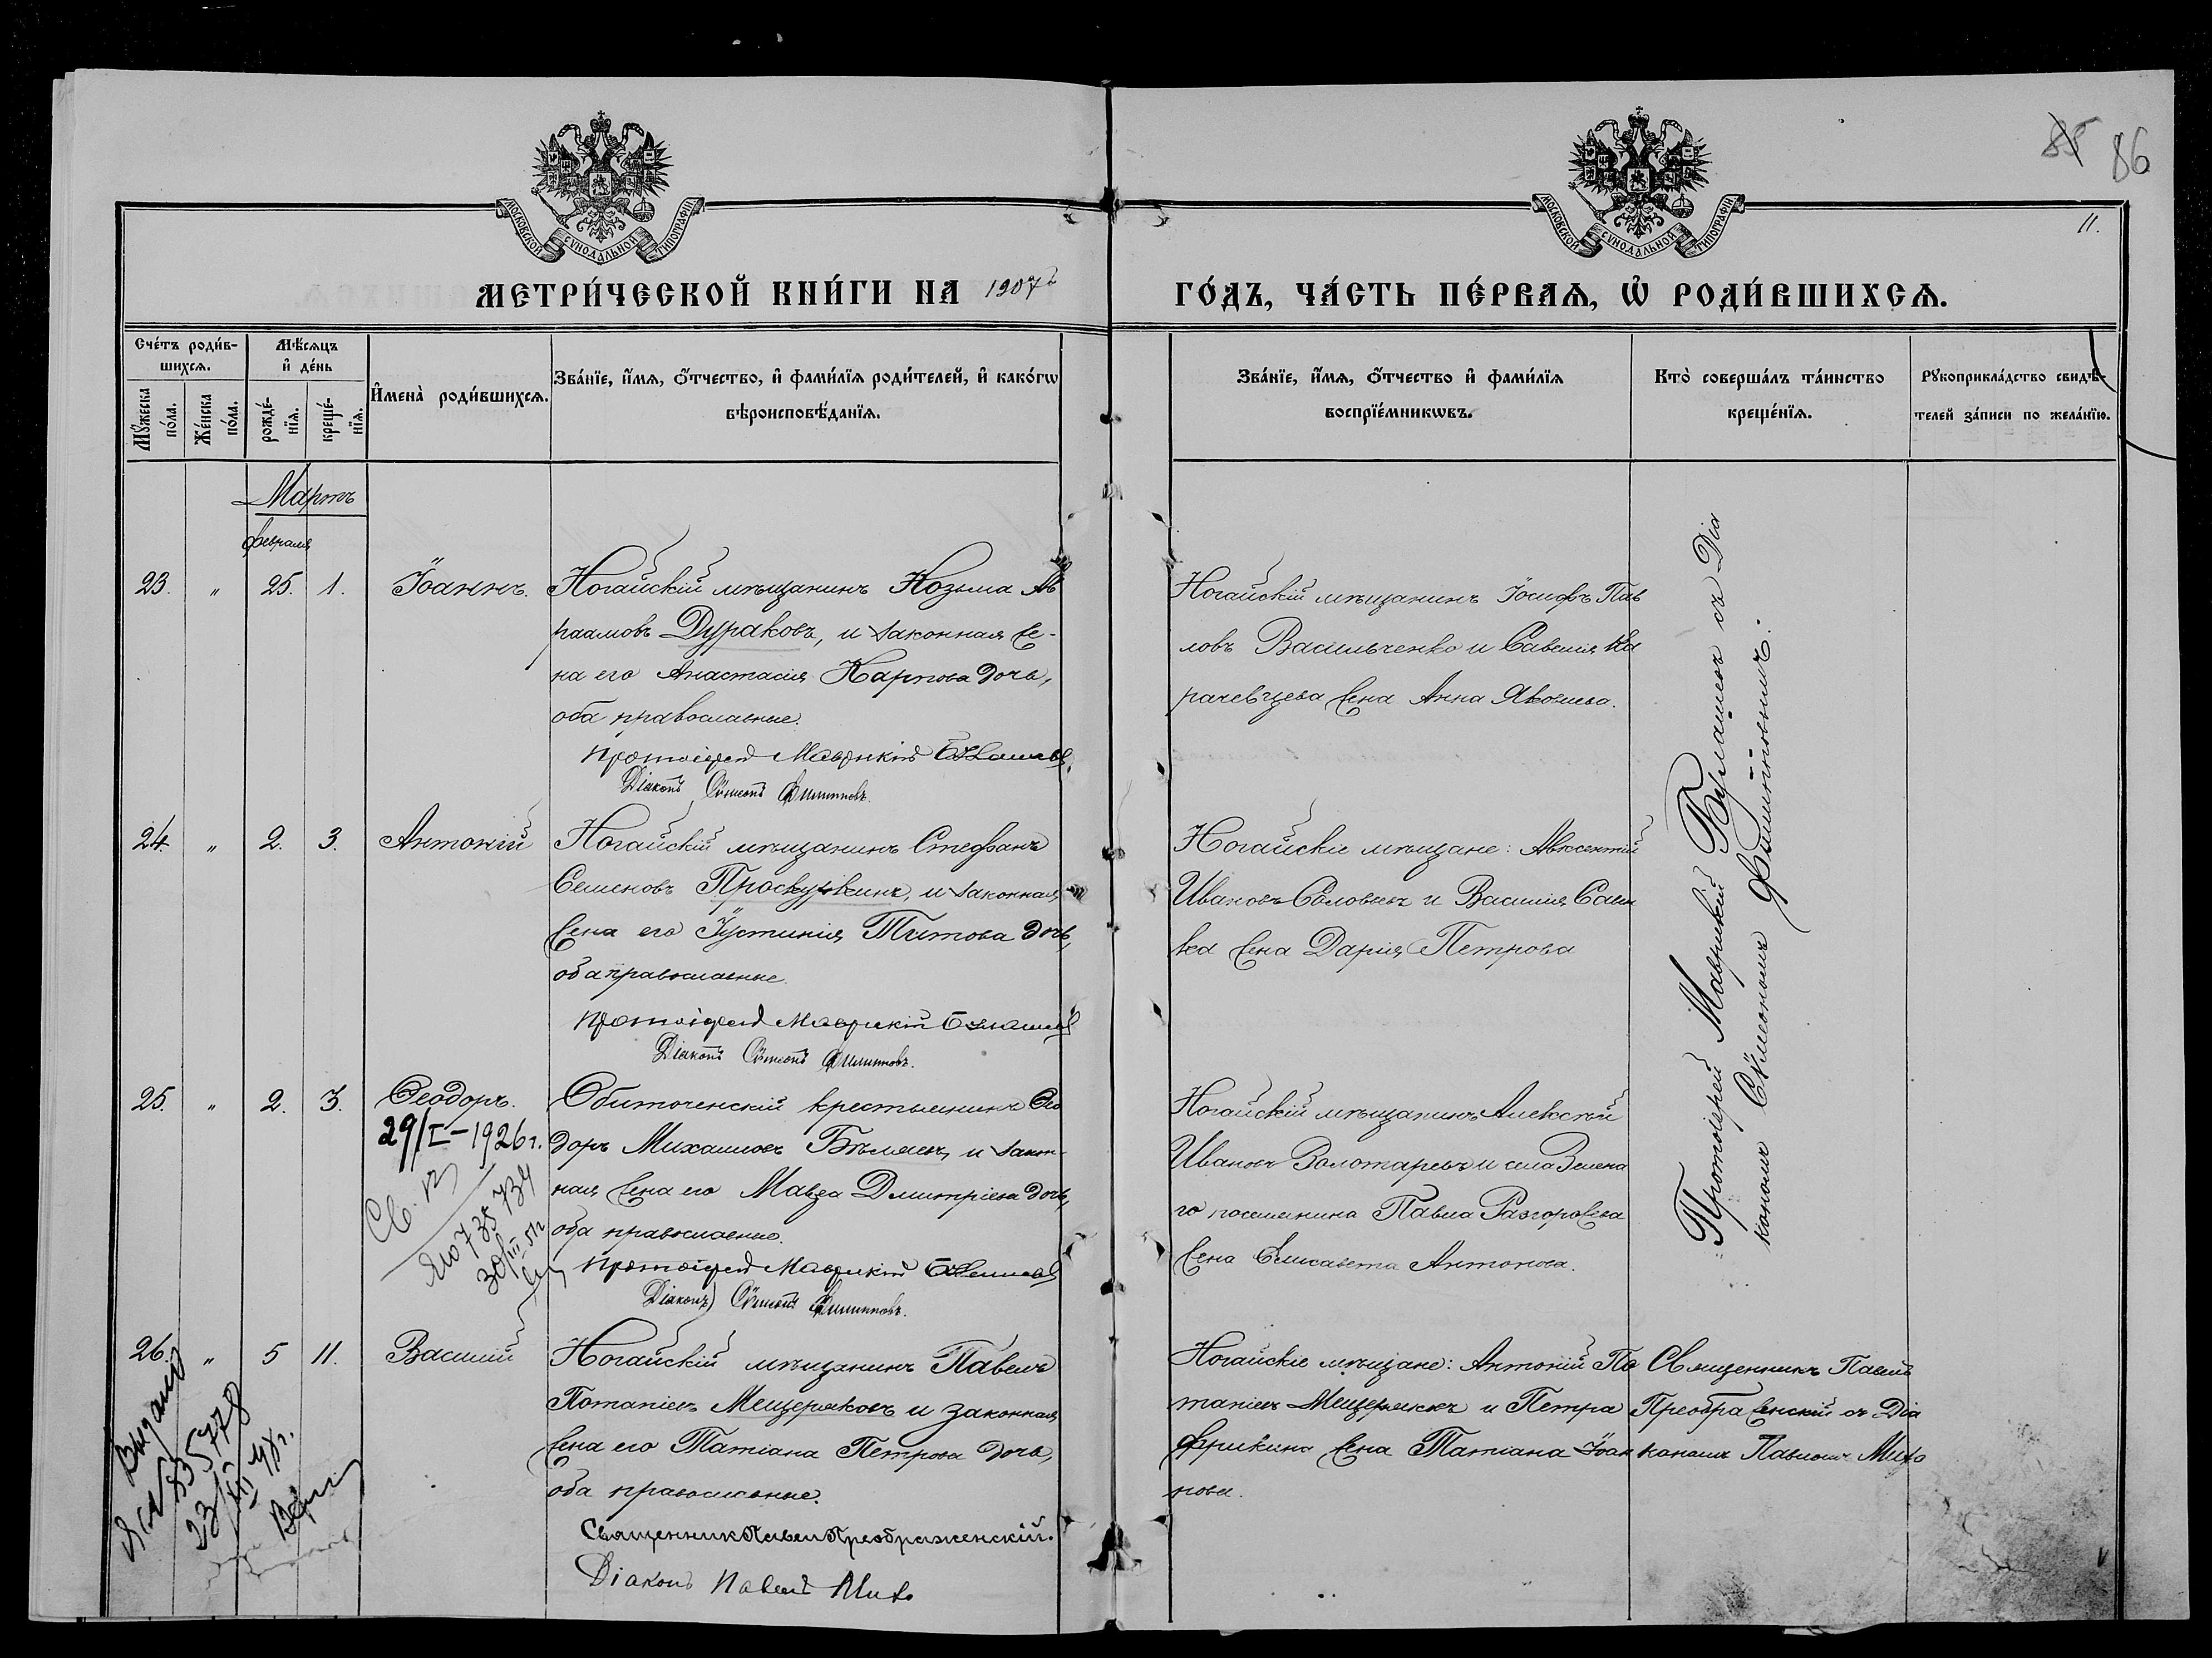 85 86
11.
МОСКОВСКОЙ СѴНОДАЛЬНОЙ ТИПОГРАФІИ
МОСКОВСКОЙ СѴНОДАЛЬНОЙ ТИПОГРАФІИ
МЕТРИ́ЧЕСКОЙ КНИ́ГИ НА 1907 й
ГО́ДЪ, ЧА́СТЬ ПЕ́РВАѦ, Ѡ҆ РОДИ́ВШИХСѦ.
Сче́тъ роди́вшихсѧ.
Мꙋ́жеска по́ла.
Же́нска по́ла.
Мѣ́сѧцъ и҆ де́нь
рожде́нїѧ.
креще́нїѧ.
И҆мена̀ роди́вшихсѧ.
Зва́нїе, и҆́мѧ, ѻ҆́тчество, и҆ фами́лїѧ роди́телей, и҆ како́гѡ
вѣроисповѣ́данїѧ.
Зва́нїе, и҆́мѧ, ѻ҆́тчество и҆ фами́лїѧ
воспрїе́мникѡвъ.
Кто̀ соверша́лъ та́инство
креще́нїѧ.
Рꙋкоприкла́дство свидѣ́-
телей за́писи по жела́нїю.
Мартъ
февраля
23. " 25. 1. Іоаннъ.
Ногайскій мѣщанинъ Козьма Ав
раамовъ Дураковъ, и законная же-
на его Анастасія Карпова дочь,
оба православные.
Протоіерей Маврикій Булашевъ
Діаконъ Сѵмеонъ Филипповъ.
Ногайскій мѣщанинъ Іосифъ Пав
ловъ Васильченко и Савелія Ка
рачевцева жена Анна Яковлева.
24. " 2. 3. Антоній
Ногайскій мѣщанинъ Стефанъ
Семеновъ Проскурвинъ, и законная
жена его Іустинія Титова дочь,
оба православные.
Протоіерей Маврикій Булашевъ
Діаконъ Сѵмеонъ Филипповъ.
Ногайскіе мѣщане: Авксентій
Ивановъ Соловьевъ и Василія
жена Дарія Петрова
25. " 2. 3. Ѳеодоръ.
29/I-1926 г.
Обиточенскій крестьянинъ Ѳео
доръ Михаиловъ Бѣляевъ, и закон-
ная жена его Мавра Димитріева дочь,
оба православные.
Протоіерей Маврикій Булашевъ
Діаконъ Сѵмеонъ Филипповъ.
Ногайскій мѣщанинъ Алексѣй
Ивановъ Золотаревъ и села Зелена
го поселянина Павла
жена Елисавета Антонова.
Протоіерей Маврикій Булашевъ съ Діа
кономъ Сѵмеономъ Филипповымъ.
26. " 5 11. Василій
Ногайскій мѣщанинъ Павелъ
Потапіевъ Мещеряковъ и законная
жена его Татіана Петрова дочь,
оба православные.
Священникъ Павелъ Преображенскій.
Діаконъ Павелъ Михо
Ногайскіе мѣщане: Антоній По
тапіевъ Мещеряковъ и Петра
жена Татіана Іоан
нова.
Священникъ Павелъ
Преображенскій съ Діа
кономъ Павломъ Михо
Выдано